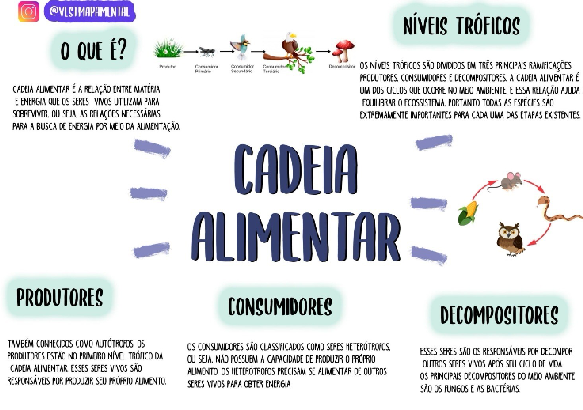 @VESTMAPAMENTAL
O QUE É?
CADEIA ALIMENTAR É A RELAÇÃO ENTRE MATÉRIA
E ENERGIA QUE OS SERES VIVOS UTILIZAM PARA
SOBREVIVER, OU SEJA, AS RELAÇÕES NECESSÁRIAS
PARA A BUSCA DE ENERGIA POR MEIO DA ALIMENTAÇÃO.
Produtor
Consumidor Primário
Consumidor Secundário
Consumidor Terciário
Decompositor
NÍVEIS TRÓFICOS
OS NÍVEIS TRÓFICOS SÃO DIVIDIDOS EM TRÊS PRINCIPAIS RAMIFICAÇÕES,
PRODUTORES, CONSUMIDORES E DECOMPOSITORES. A CADEIA ALIMENTAR É
UM DOS CICLOS QUE OCORRE NO MEIO AMBIENTE, E ESSA RELAÇÃO AJUDA
EQUILIBRAR O ECOSSISTEMA, PORTANTO TODAS AS ESPÉCIES SÃO
EXTREMAMENTE IMPORTANTES PARA CADA UMA DAS ETAPAS EXISTENTES.
CADEIA
ALIMENTAR
PRODUTORES
TAMBÉM CONHECIDOS COMO AUTÓTROFOS, OS
PRODUTORES ESTÃO NO PRIMEIRO NÍVEL TRÓFICO DA
CADEIA ALIMENTAR. ESSES SERES VIVOS SÃO
RESPONSÁVEIS POR PRODUZIR SEU PRÓPRIO ALIMENTO.
CONSUMIDORES
OS CONSUMIDORES SÃO CLASSIFICADOS COMO SERES HETERÓTROFOS,
OU SEJA, NÃO POSSUEM A CAPACIDADE DE PRODUZIR O PRÓPRIO
ALIMENTO. OS HETERÓTROFOS PRECISAM SE ALIMENTAR DE OUTROS
SERES VIVOS PARA OBTER ENERGIA
DECOMPOSITORES
ESSES SERES SÃO OS RESPONSÁVEIS POR DECOMPOR
OUTROS SERES VIVOS APÓS SEU CICLO DE VIDA.
OS PRINCIPAIS DECOMPOSITORES DO MEIO AMBIENTE
SÃO OS FUNGOS E AS BACTÉRIAS.